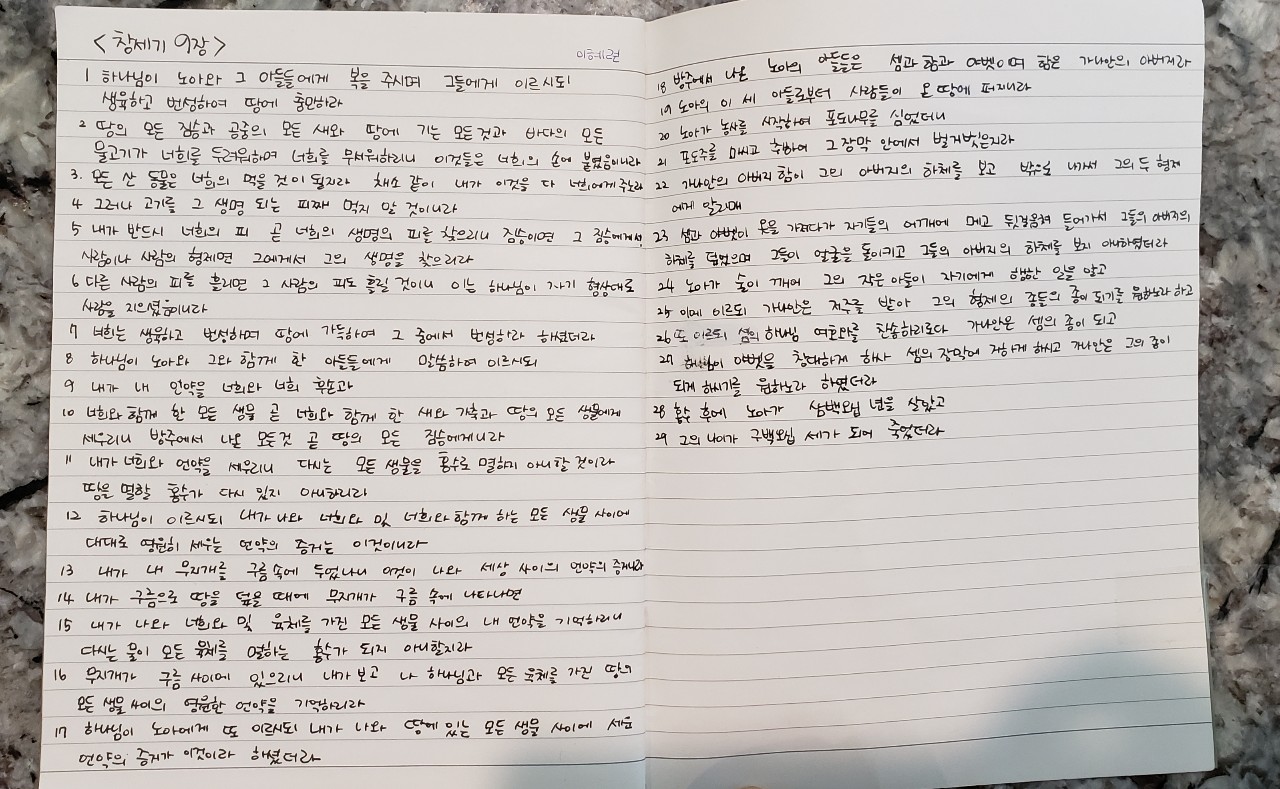 <창세기 9장>
이혜련
1 하나님이 노아와 그 아들들에게 복을 주시며 그들에게 이르시되
생육하고 번성하여 땅에 충만하라
2 땅의 모든 짐승과 공중의 모든 새와 땅에 기는 모든 것과 바다의 모든
물고기가 너희를 두려워하며 너희를 무서워하리니 이것들은 너희의 손에 붙였음이니라
3. 모든 산 동물은 너희의 먹을 것이 될지라 채소 같이 내가 이것을 다 너희에게 주노라
4 그러나 고기를 그 생명 되는 피째 먹지 말 것이니라
5 내가 반드시 너희의 피 곧 너희의 생명의 피를 찾으리니 짐승이면 그 짐승에게서
사람이나 사람의 형제면 그에게서 그의 생명을 찾으리라
6 다른 사람의 피를 흘리면 그 사람의 피도 흘릴 것이니 이는 하나님이 자기 형상대로
사람을 지으셨음이니라
7 너희는 생육하고 번성하며 땅에 가득하여 그 중에서 번성하라 하셨더라
8 하나님이 노아와 그와 함께 한 아들들에게 말씀하여 이르시되
9 내가 내 언약을 너희와 너희 후손과
10 너희와 함께 한 모든 생물 곧 너희와 함께 한 새와 가축과 땅의 모든 생물에게
세우리니 방주에서 나온 모든 것 곧 땅의 모든 짐승에게니라
11 내가 너희와 언약을 세우리니 다시는 모든 생물을 홍수로 멸하지 아니할 것이라
땅을 멸할 홍수가 다시 있지 아니하리라
12 하나님이 이르시되 내가 나와 너희와 및 너희와 함께 하는 모든 생물 사이에
대대로 영원히 세우는 언약의 증거는 이것이니라
13 내가 내 무지개를 구름 속에 두었나니 이것이 나와 세상 사이의 언약의 증거니라
14 내가 구름으로 땅을 덮을 때에 무지개가 구름 속에 나타나면
15 내가 나와 너희와 및 육체를 가진 모든 생물 사이의 내 언약을 기억하리니
다시는 물이 모든 육체를 멸하는 홍수가 되지 아니할지라
16 무지개가 구름 사이에 있으리니 내가 보고 나 하나님과 모든 육체를 가진 땅의
모든 생물 사이의 영원한 언약을 기억하리라
17 하나님이 노아에게 또 이르시되 내가 나와 땅에 있는 모든 생물 사이에 세운
언약의 증거가 이것이라 하셨더라
18 방주에서 나온 노아의 아들들은 셈과 함과 야벳이며 함은 가나안의 아버지라
19 노아의 이 세 아들로부터 사람들이 온 땅에 퍼지니라
20 노아가 농사를 시작하여 포도나무를 심었더니
21 포도주를 마시고 취하여 그 장막 안에서 벌거벗은지라
22 가나안의 아버지 함이 그의 아버지의 하체를 보고 밖으로 나가서 그의 두 형제
에게 알리매
23 셈과 야벳이 옷을 가져다가 자기들의 어깨에 메고 뒷걸음쳐 들어가서 그들의 아버지의
하체를 덮었으며 그들이 얼굴을 돌이키고 그들의 아버지의 하체를 보지 아니하였더라
24 노아가 술이 깨어 그의 작은 아들이 자기에게 행한 일을 알고
25 이에 이르되 가나안은 저주를 받아 그의 형제의 종들의 종이 되기를 원하노라 하고
26 또 이르되 셈의 하나님 여호와를 찬송하리로다 가나안은 셈의 종이 되고
27 하나님이 야벳을 창대하게 하사 셈의 장막에 거하게 하시고 가나안은 그의 종이
되게 하시기를 원하노라 하였더라
28 홍수 후에 노아가 삼백오십 년을 살았고
29 그의 나이가 구백오십 세가 되어 죽었더라